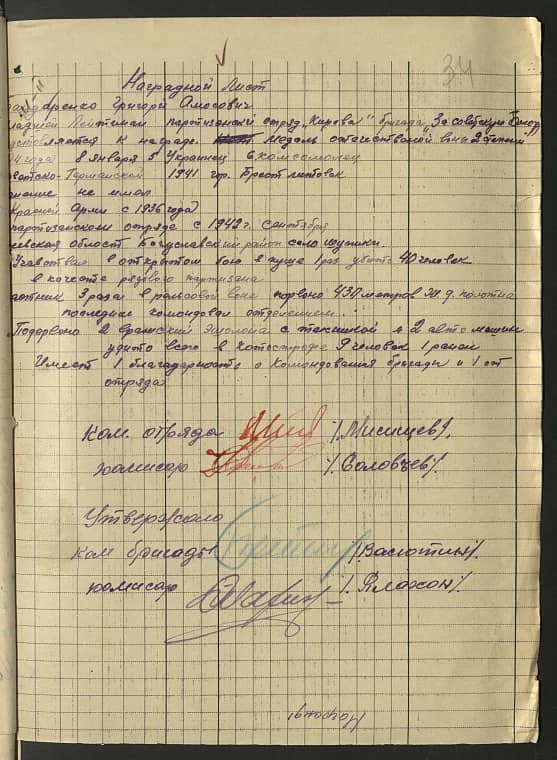 34
Наградной Лист
аренко Григори Амосович
Лейтинан партизански отряд "Кирова" бригада "За советскую
к награде. Медаль отечественой воне 2 степени
4 года 8 января 5 Украинец 6. комсомолец
Германской 1941 гор. Брест литовск
не имел
Красней Арми с 1936 года)
партизанском отряде с 1942 г. сентября
евская област Богуславский район село
Учавствал в открытом бою в пуще 1 раз убито 40 человек
в качестве рядового партизана
3 раза в рельсовой воне порвоно 430 метров Ж.д. полотна
последние командовал отделением.
Подорвено 2 Вражский Эшолона с техникой и 2 авто машин
убито всего в Котострофе 9 человек 1 ранен
Имеет 1 благодарность о Комондования бригады и 1 от
отряда
Ком. отряда /. Мисницев/.
комисар /. Соловцев/.
Утвержоно
Ком бригады /Васютин/.
комисар /.